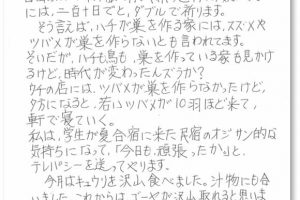 には、二百十日でと、ダブルで祈ります。
そう言えば、ハチが巣を作る家には、スズメや
ツバメが巣を作らないとも言われてます。
そいだが、ハチも鳥も、巣作っている家も見かけ
るけど、時代が変わったんズラか?
タチの店には、ツバメが巣を作らなかったけど、
夕方になると、若いツバメが10羽ほど来て、
軒で寝ていく。
私は、学生が夏合宿に来た民宿のオジサン的な
気持ちになって、「今日も、頑張ったか」と、
テレパシーを送ってやります。
今月はキュウリを沢山食べました。汁物にも合
いました。これからは、ゴーヤが沢山取れると思いま